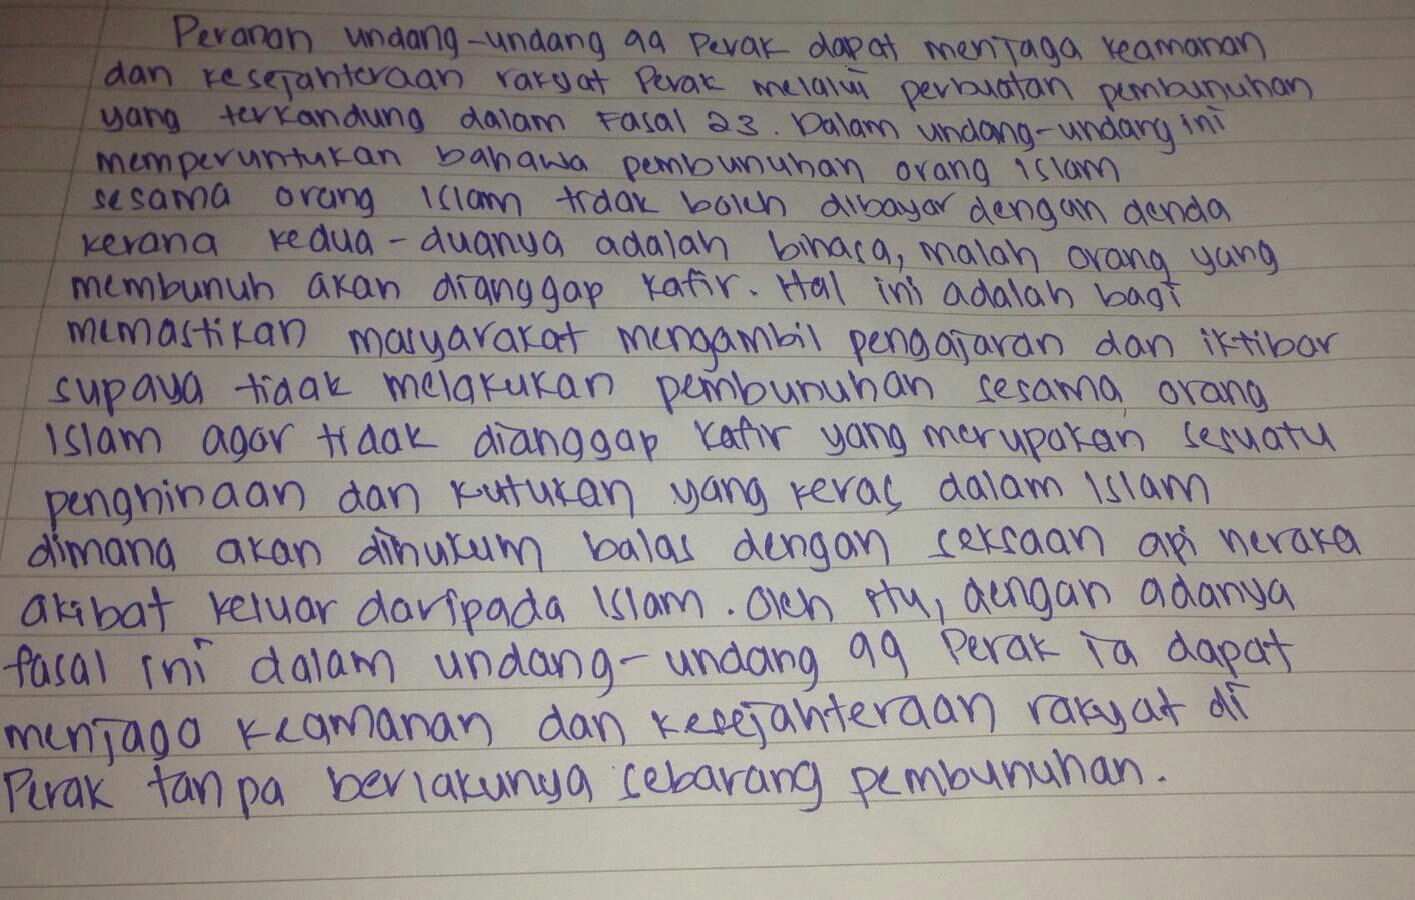 Peranan undang-undang 99 Perak dapat menjaga keamanan
dan kesejahteraan rakyat Perak melalui perbuatan pembunuhan
yang terkandung dalam Fasal 23. Dalam undang-undang ini
memperuntukan bahawa pembunuhan orang islam
sesama orang Islam tidak boleh dibayar dengan denda
kerana kedua-duanya adalah binasa, malah orang yang
membunuh akan dianggap kafir. Hal ini adalah bagi
memastikan masyarakat mengambil pengajaran dan iktibar
supaya tidak melakukan pembunuhan sesama orang
Islam agar tidak dianggap kafir yang merupakan sesuatu
penghinaan dan kutukan yang keras dalam Islam
dimana akan dihukum balas dengan seksaan api neraka
akibat keluar daripada Islam. Oleh itu, dengan adanya
fasal ini dalam undang-undang 99 Perak ia dapat
menjaga keamanan dan kesejahteraan rakyat di
Perak tanpa berlakunya sebarang pembunuhan.